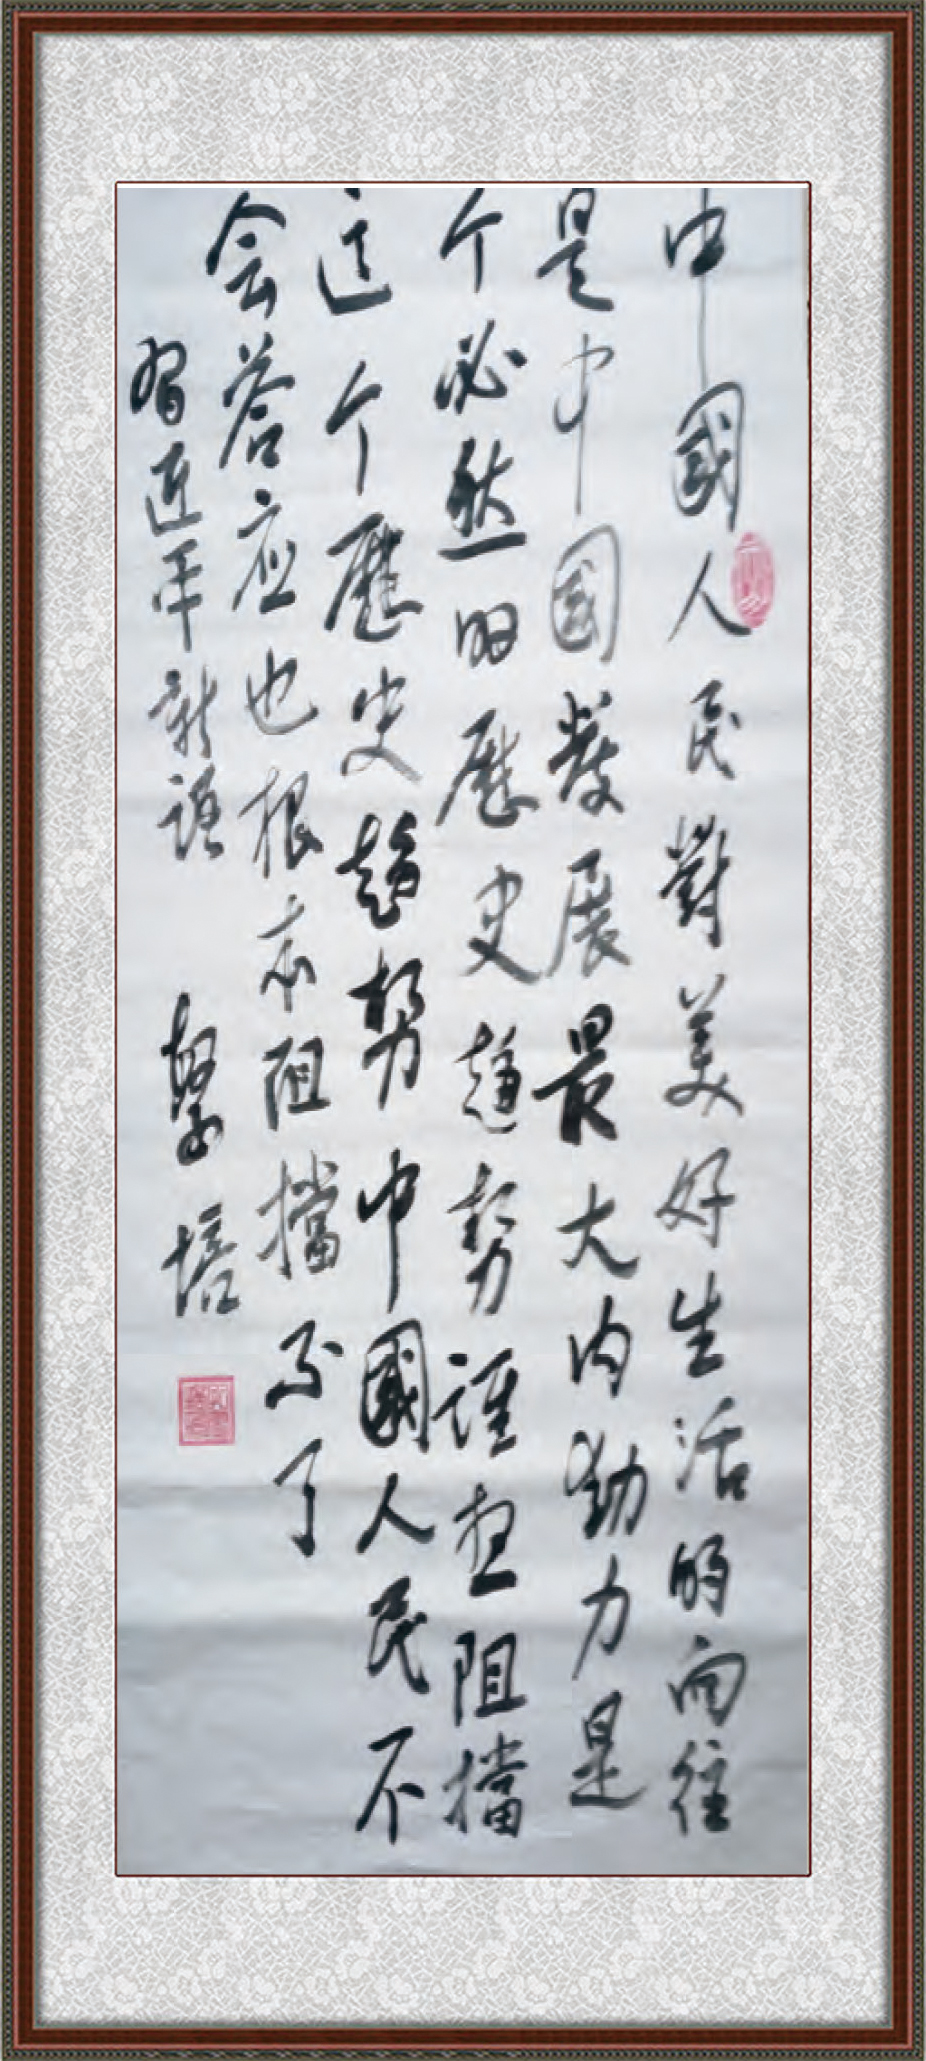 中國人民對美好生活的向往
是中國發展最大内動力是
个必然的歷史趋势谁想阻擋
这个歷史趋势中國人民不
会答应也根本阻擋不了
習近平新語
培